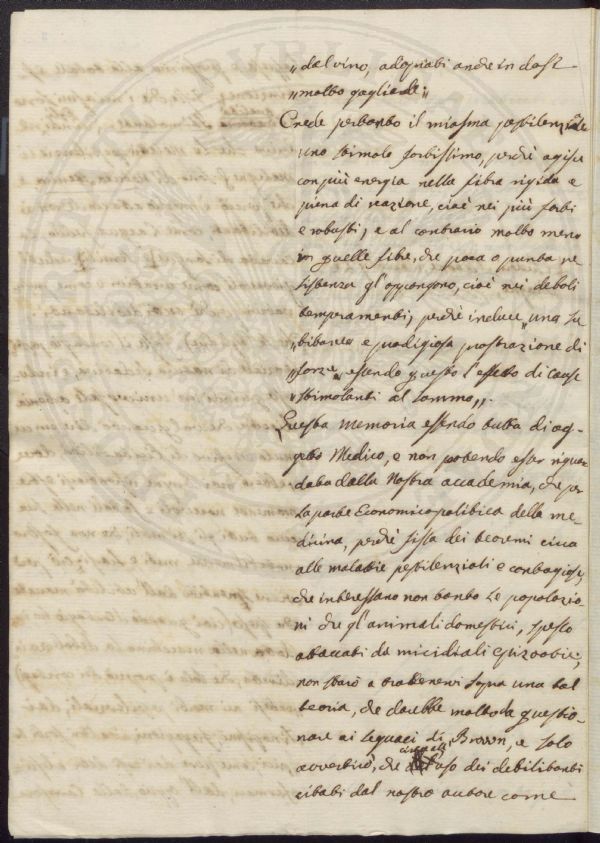 „dal vino, adoprati anche in dosi
„molto gagliarde„
Crede pertanto il miasma pestilenziale
uno stimolo fortissimo, perchè agisce
con più energia nella fibra rigida e
piena di reazione, cioè nei più forti
e robusti, e al contrario molto meno
in quelle fibre, che poca o punta re
sistenza gl'oppongono, cioè nei deboli
temperamenti, perchè induce „una su
„bitanea e prodigiosa prostrazione di
„forze„ essendo questo l'effetto di cause
„stimolanti al sommo„.
Questa memoria essendo tutta di og-
getto Medico, e non potendo esser riguar
data dalla Nostra accademia, che per
la parte Economico politica della me-
dicina, perchè fissa dei teoremi circa
alle malattie pestilenziali e contagiose,
che interessano non tanto le popolazio-
ni che gl'animali domestici, spesso
attaccati da micidiali epizootie;
non starò a trattenervi sopra una tal
teoria, che darebbe molto da questio-
nare ai seguaci di Brown, e solo
avvertirò, che circa all'uso dei debilitanti
citati dal nostro autore come